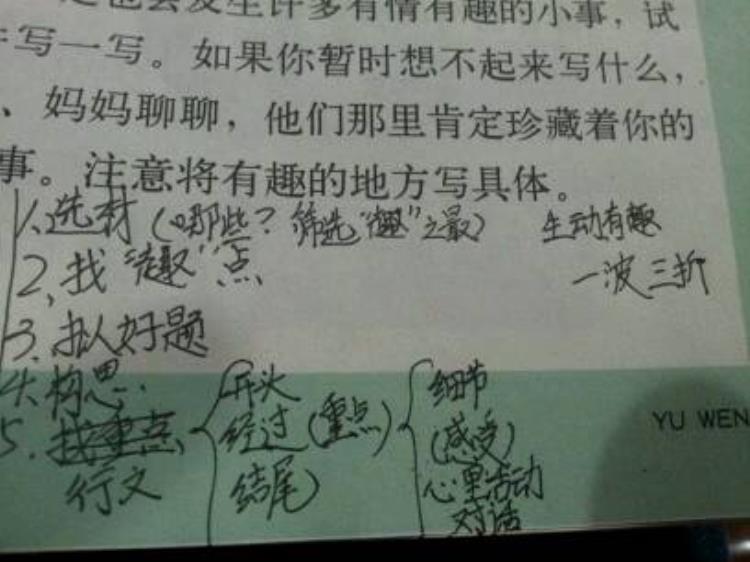 定也会发生许多有情有趣的小事，试
写一写。如果你暂时想不起来写什么，
、妈妈聊聊，他们那里肯定珍藏着你的
事。注意将有趣的地方写具体。
1.选材（哪些？筛选“趣”之最） 生动有趣
2.找“趣”点 一波三折
3.拟好题
4.构思.
5.找重点
行文
开头
经过（重点）
结尾
细节
（感受）
心里活动
对话
YU WEN